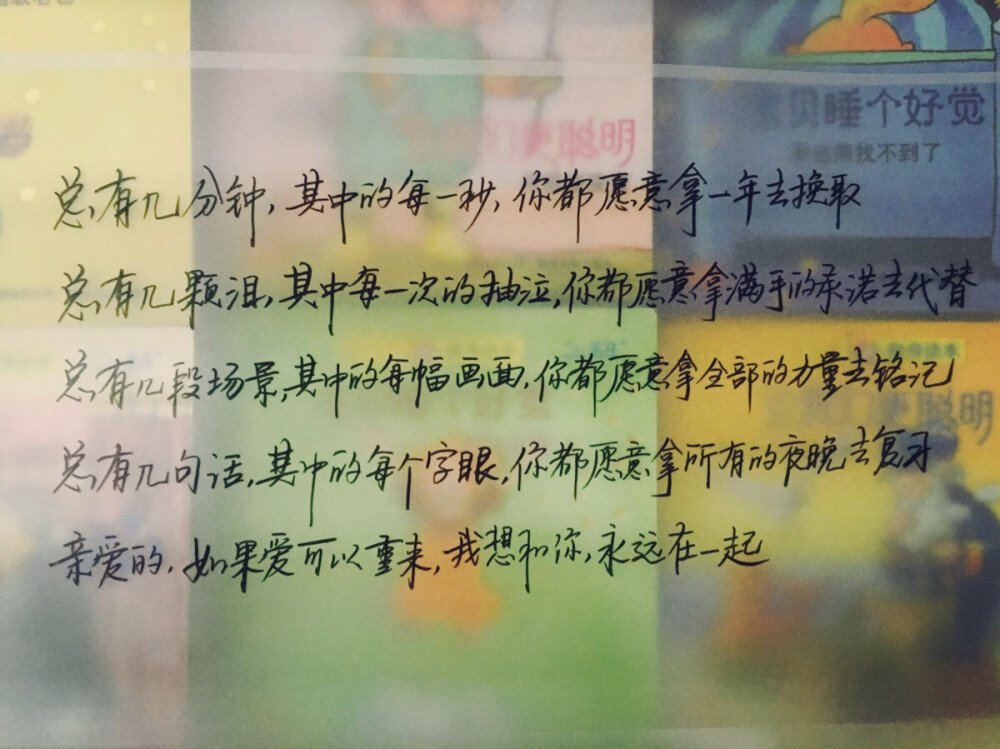 们更聪明
贝睡个好觉
找不到了
总有几分钟,其中的每一秒,你都愿意拿一年去换取
总有几颗泪,其中每一次的抽泣,你都愿意拿满手的承诺去代替
总有几段场景,其中的每幅画面,你都愿意拿全部的力量去铭记
总有几句话,其中的每个字眼,你都愿意拿所有的夜晚去复习
亲爱的,如果爱可以重来,我想和你,永远在一起
更聪明